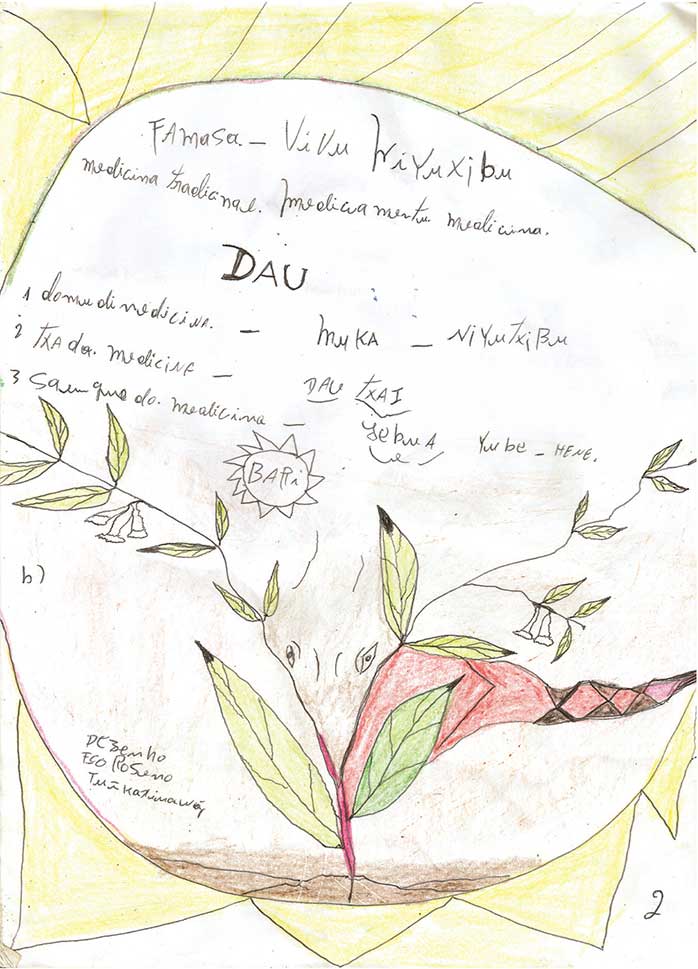 FAmasa – ViVu NiYuXibu
medicina tradicinal. medicamentu medicina.
DAU
1 domudi medicina. – muKA – NiYuTxiBu
2 TXA da. medicina – DAU TXAI
3 Sanque do. medicina – Yube – HENE.
BARi
b)
DEsenho
Tuĩ Kaxinawá
2